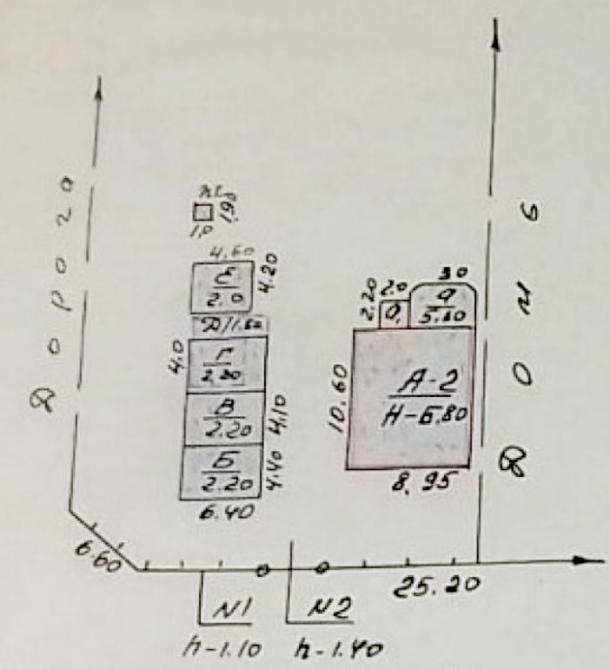 Дорога
1,0
1,9
4.60
4.20
Е
2.0
Д/1.60
4.0
Г
2.80
В
2.20
4.10
Б
2.20
4.40
6.40
2.20
2.0
а,
30
а
5.80
10.60
А-2
Н-6.80
8.95
Дом 6
6.60
25.20
N1
h-1.10
N2
h-1.40